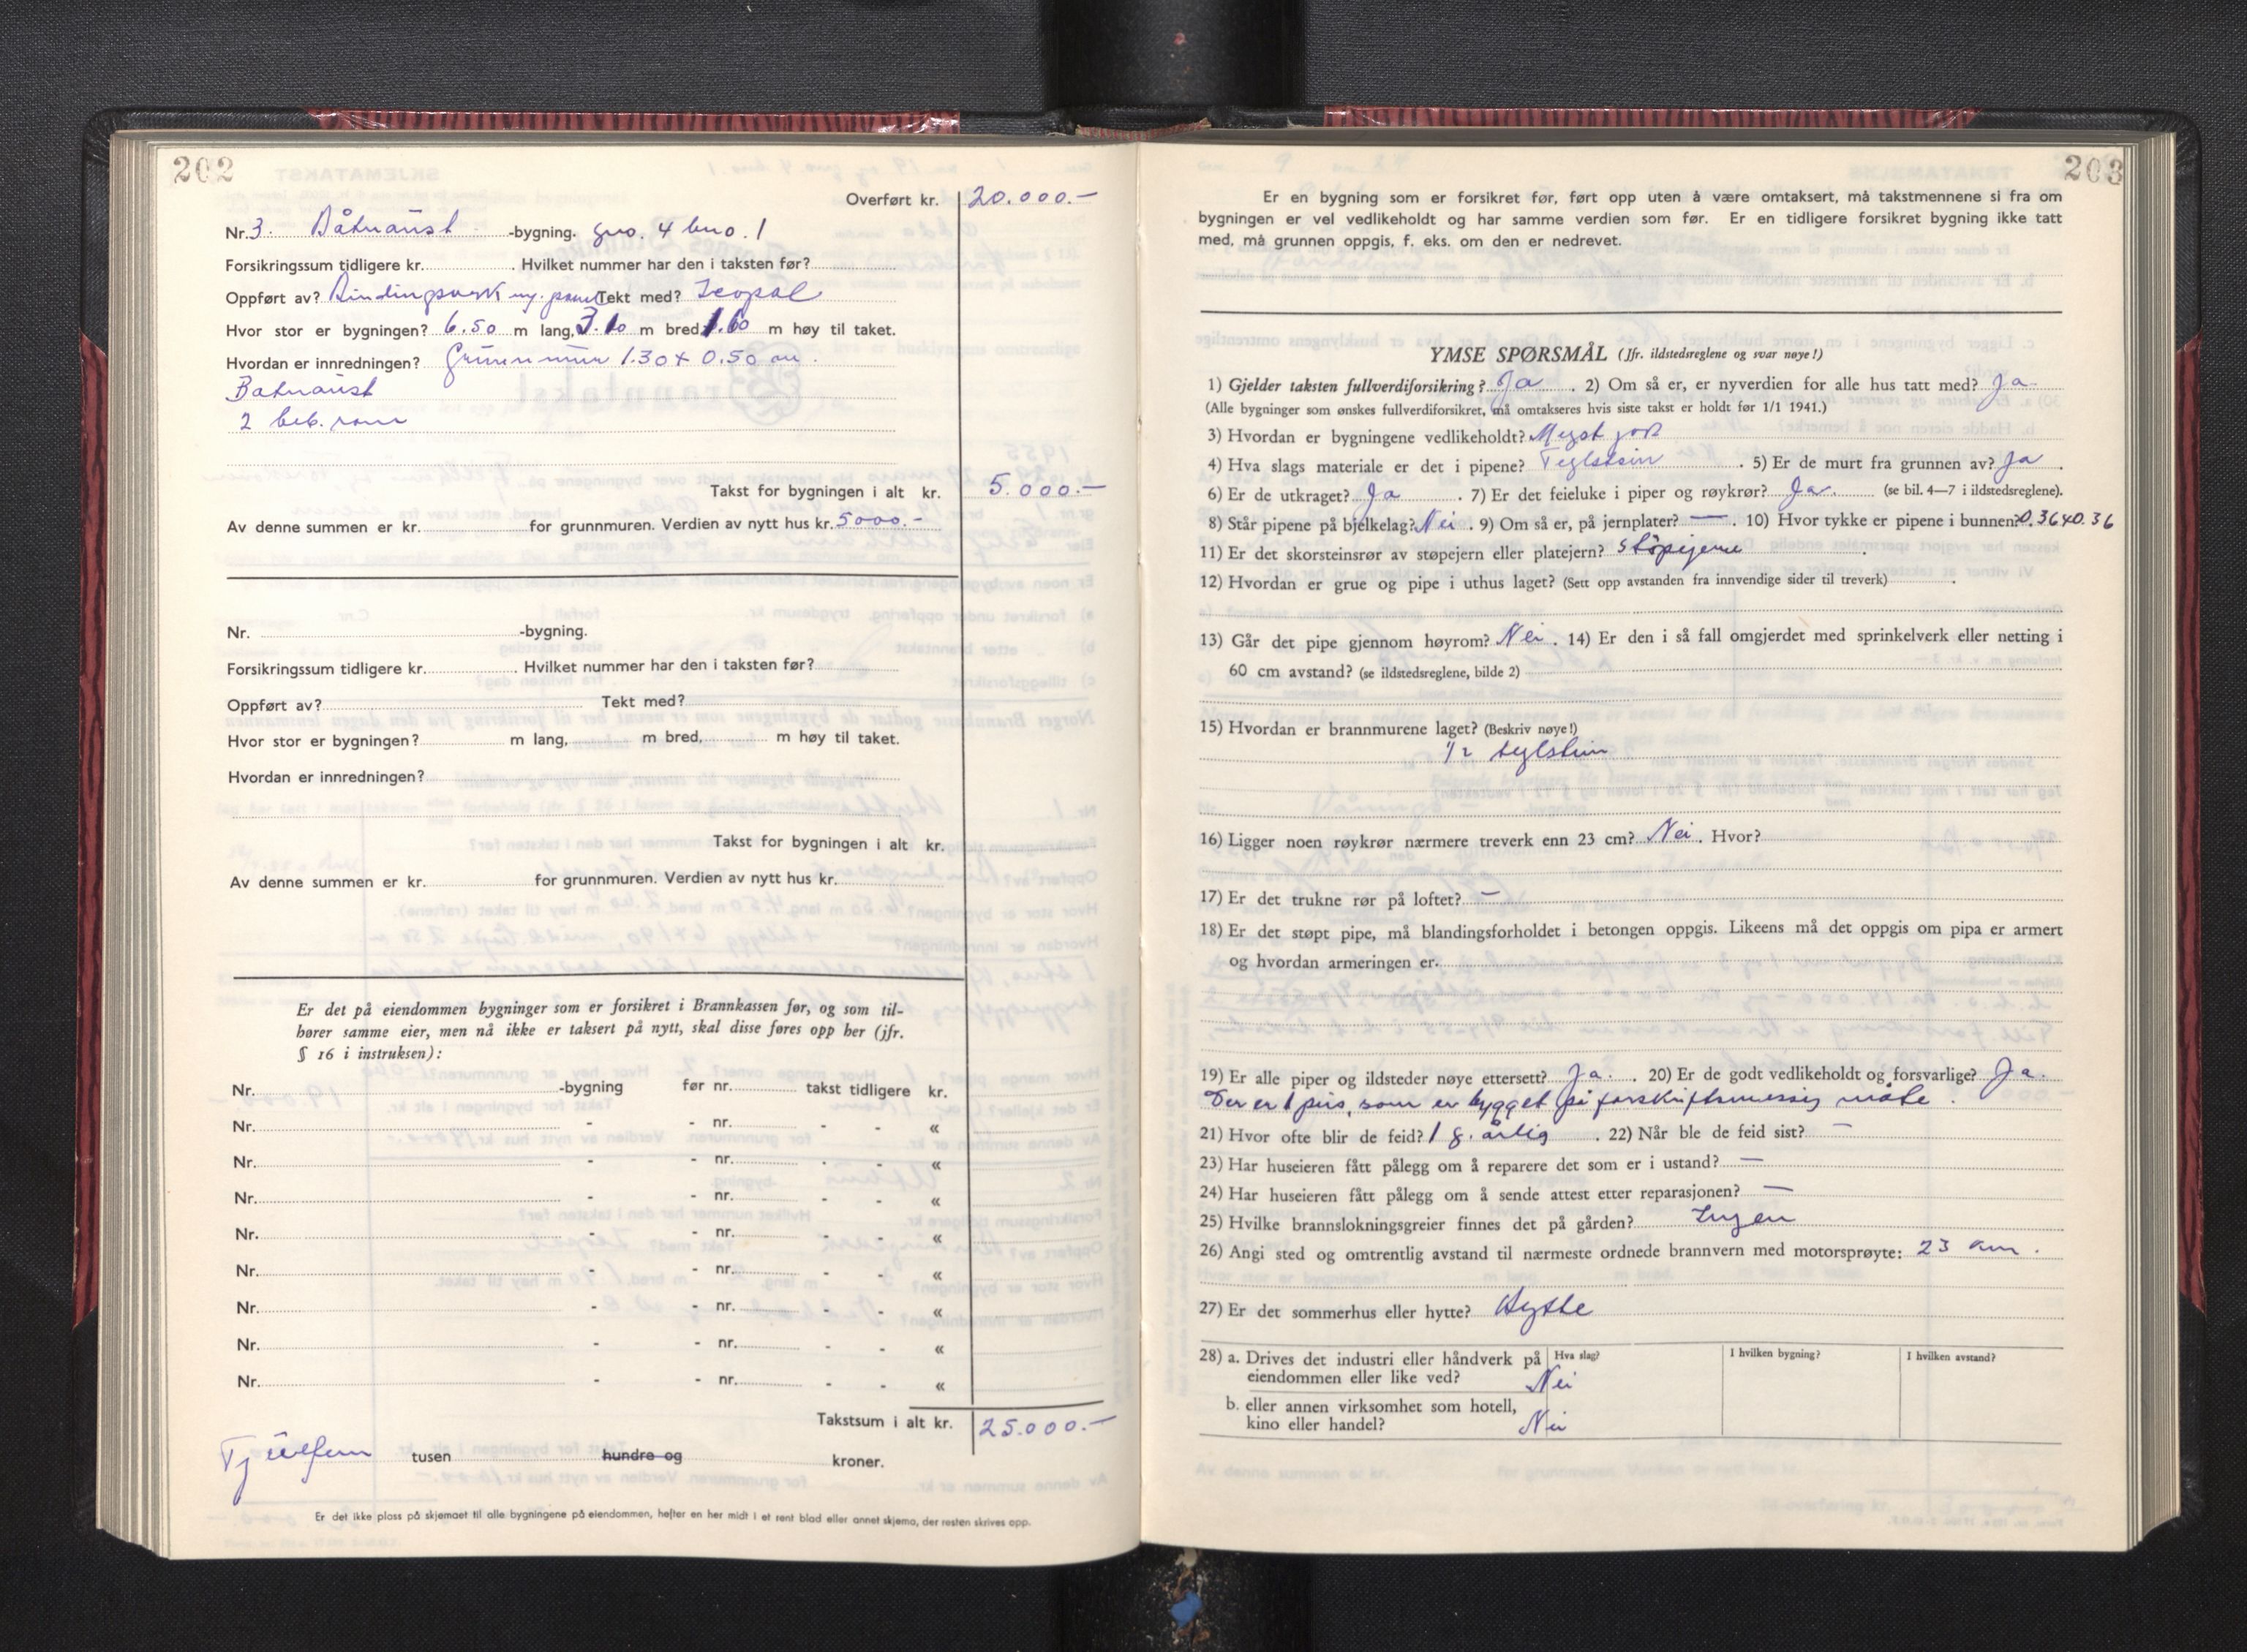 202
Overført kr. 20.000.-
Nr. 3. Båtnaust -bygning. gno. 4 bno. 1
Forsikringssum tidligere kr. . Hvilket nummer har den i taksten før?
Oppført av? Bindingsverk Tekt med? Icopal
Hvor stor er bygningen? 6.50 m lang, 3.10 m bred, 1.60 m høy til taket.
Hvordan er innredningen? Grunnmur 1.30 + 0.50 m.
Båtnaust
2 beb. rom
Takst for bygningen i alt kr. 5.000.-
Av denne summen er kr. for grunnmuren. Verdien av nytt hus kr. 5000.-
Nr. -bygning.
Forsikringssum tidligere kr. . Hvilket nummer har den i taksten før?
Oppført av? Tekt med?
Hvor stor er bygningen? m lang, m bred, m høy til taket.
Hvordan er innredningen?
Takst for bygningen i alt kr.
Av denne summen er kr. for grunnmuren. Verdien av nytt hus kr.
Er det på eiendommen bygninger som er forsikret i Brannkassen før, og som til-
hører samme eier, men nå ikke er taksert på nytt, skal disse føres opp her (jfr.
§ 16 i instruksen):
Nr. -bygning før nr. takst tidligere kr.
Nr. - - nr. - - «
Nr. - - nr. - - «
Nr. - - nr. - - «
Nr. - - nr. - - «
Nr. - - nr. - - «
Nr. - - nr. - - «
Nr. - - nr. - - «
Nr. - - nr. - - «
Takstsum i alt kr. 25.000.-
Tjuefem tusen hundre og kroner.
Er det ikke plass på skjemaet til alle bygningene på eiendommen, hefter en her midt i et rent blad eller annet skjema, der resten skrives opp.
203
Er en bygning som er forsikret før, ført opp uten å være omtaksert, må takstmennene si fra om
bygningen er vel vedlikeholdt og har samme verdien som før. Er en tidligere forsikret bygning ikke tatt
med, må grunnen oppgis, f. eks. om den er nedrevet.
YMSE SPØRSMÅL (Jfr. ildstedsreglene og svar nøye!)
1) Gjelder taksten fullverdiforsikring? Ja . 2) Om så er, er nyverdien for alle hus tatt med? Ja
(Alle bygninger som ønskes fullverdiforsikret, må omtakseres hvis siste takst er holdt før 1/1 1941.)
3) Hvordan er bygningene vedlikeholdt? Meget godt
4) Hva slags materiale er det i pipene? Teglstein . 5) Er de murt fra grunnen av? Ja .
6) Er de utkraget? Ja . 7) Er det feieluke i piper og røykrør? Ja. (se bil. 4—7 i ildstedsreglene).
8) Står pipene på bjelkelag? Nei . 9) Om så er, på jernplater? — . 10) Hvor tykke er pipene i bunnen? 0.36x0.36
11) Er det skorsteinsrør av støpejern eller platejern? Støpejern .
12) Hvordan er grue og pipe i uthus laget? (Sett opp avstanden fra innvendige sider til treverk) .
13) Går det pipe gjennom høyrom? Nei . 14) Er den i så fall omgjerdet med sprinkelverk eller netting i
60 cm avstand? (se ildstedsreglene, bilde 2)
15) Hvordan er brannmurene laget? (Beskriv nøye!)
1/2 teglstein
16) Ligger noen røykrør nærmere treverk enn 23 cm? Nei . Hvor?
17) Er det trukne rør på loftet? —
18) Er det støpt pipe, må blandingsforholdet i betongen oppgis. Likeens må det oppgis om pipa er armert
og hvordan armeringen er.
19) Er alle piper og ildsteder nøye ettersett? Ja. . 20) Er de godt vedlikeholdt og forsvarlige? Ja.
Der er 1 peis, som er bygget på forskriftsmessig måte .
21) Hvor ofte blir de feid? 1 g. årlig . 22) Når ble de feid sist? —
23) Har huseieren fått pålegg om å reparere det som er i ustand? —
24) Har huseieren fått pålegg om å sende attest etter reparasjonen? —
25) Hvilke brannslokningsgreier finnes det på gården? Ingen
26) Angi sted og omtrentlig avstand til nærmeste ordnede brannvern med motorsprøyte: 23 km .
27) Er det sommerhus eller hytte? Hytte
28) a. Drives det industri eller håndverk på Hva slag? I hvilken bygning? I hvilken avstand?
eiendommen eller like ved? Nei
b. eller annen virksomhet som hotell,
kino eller handel? Nei